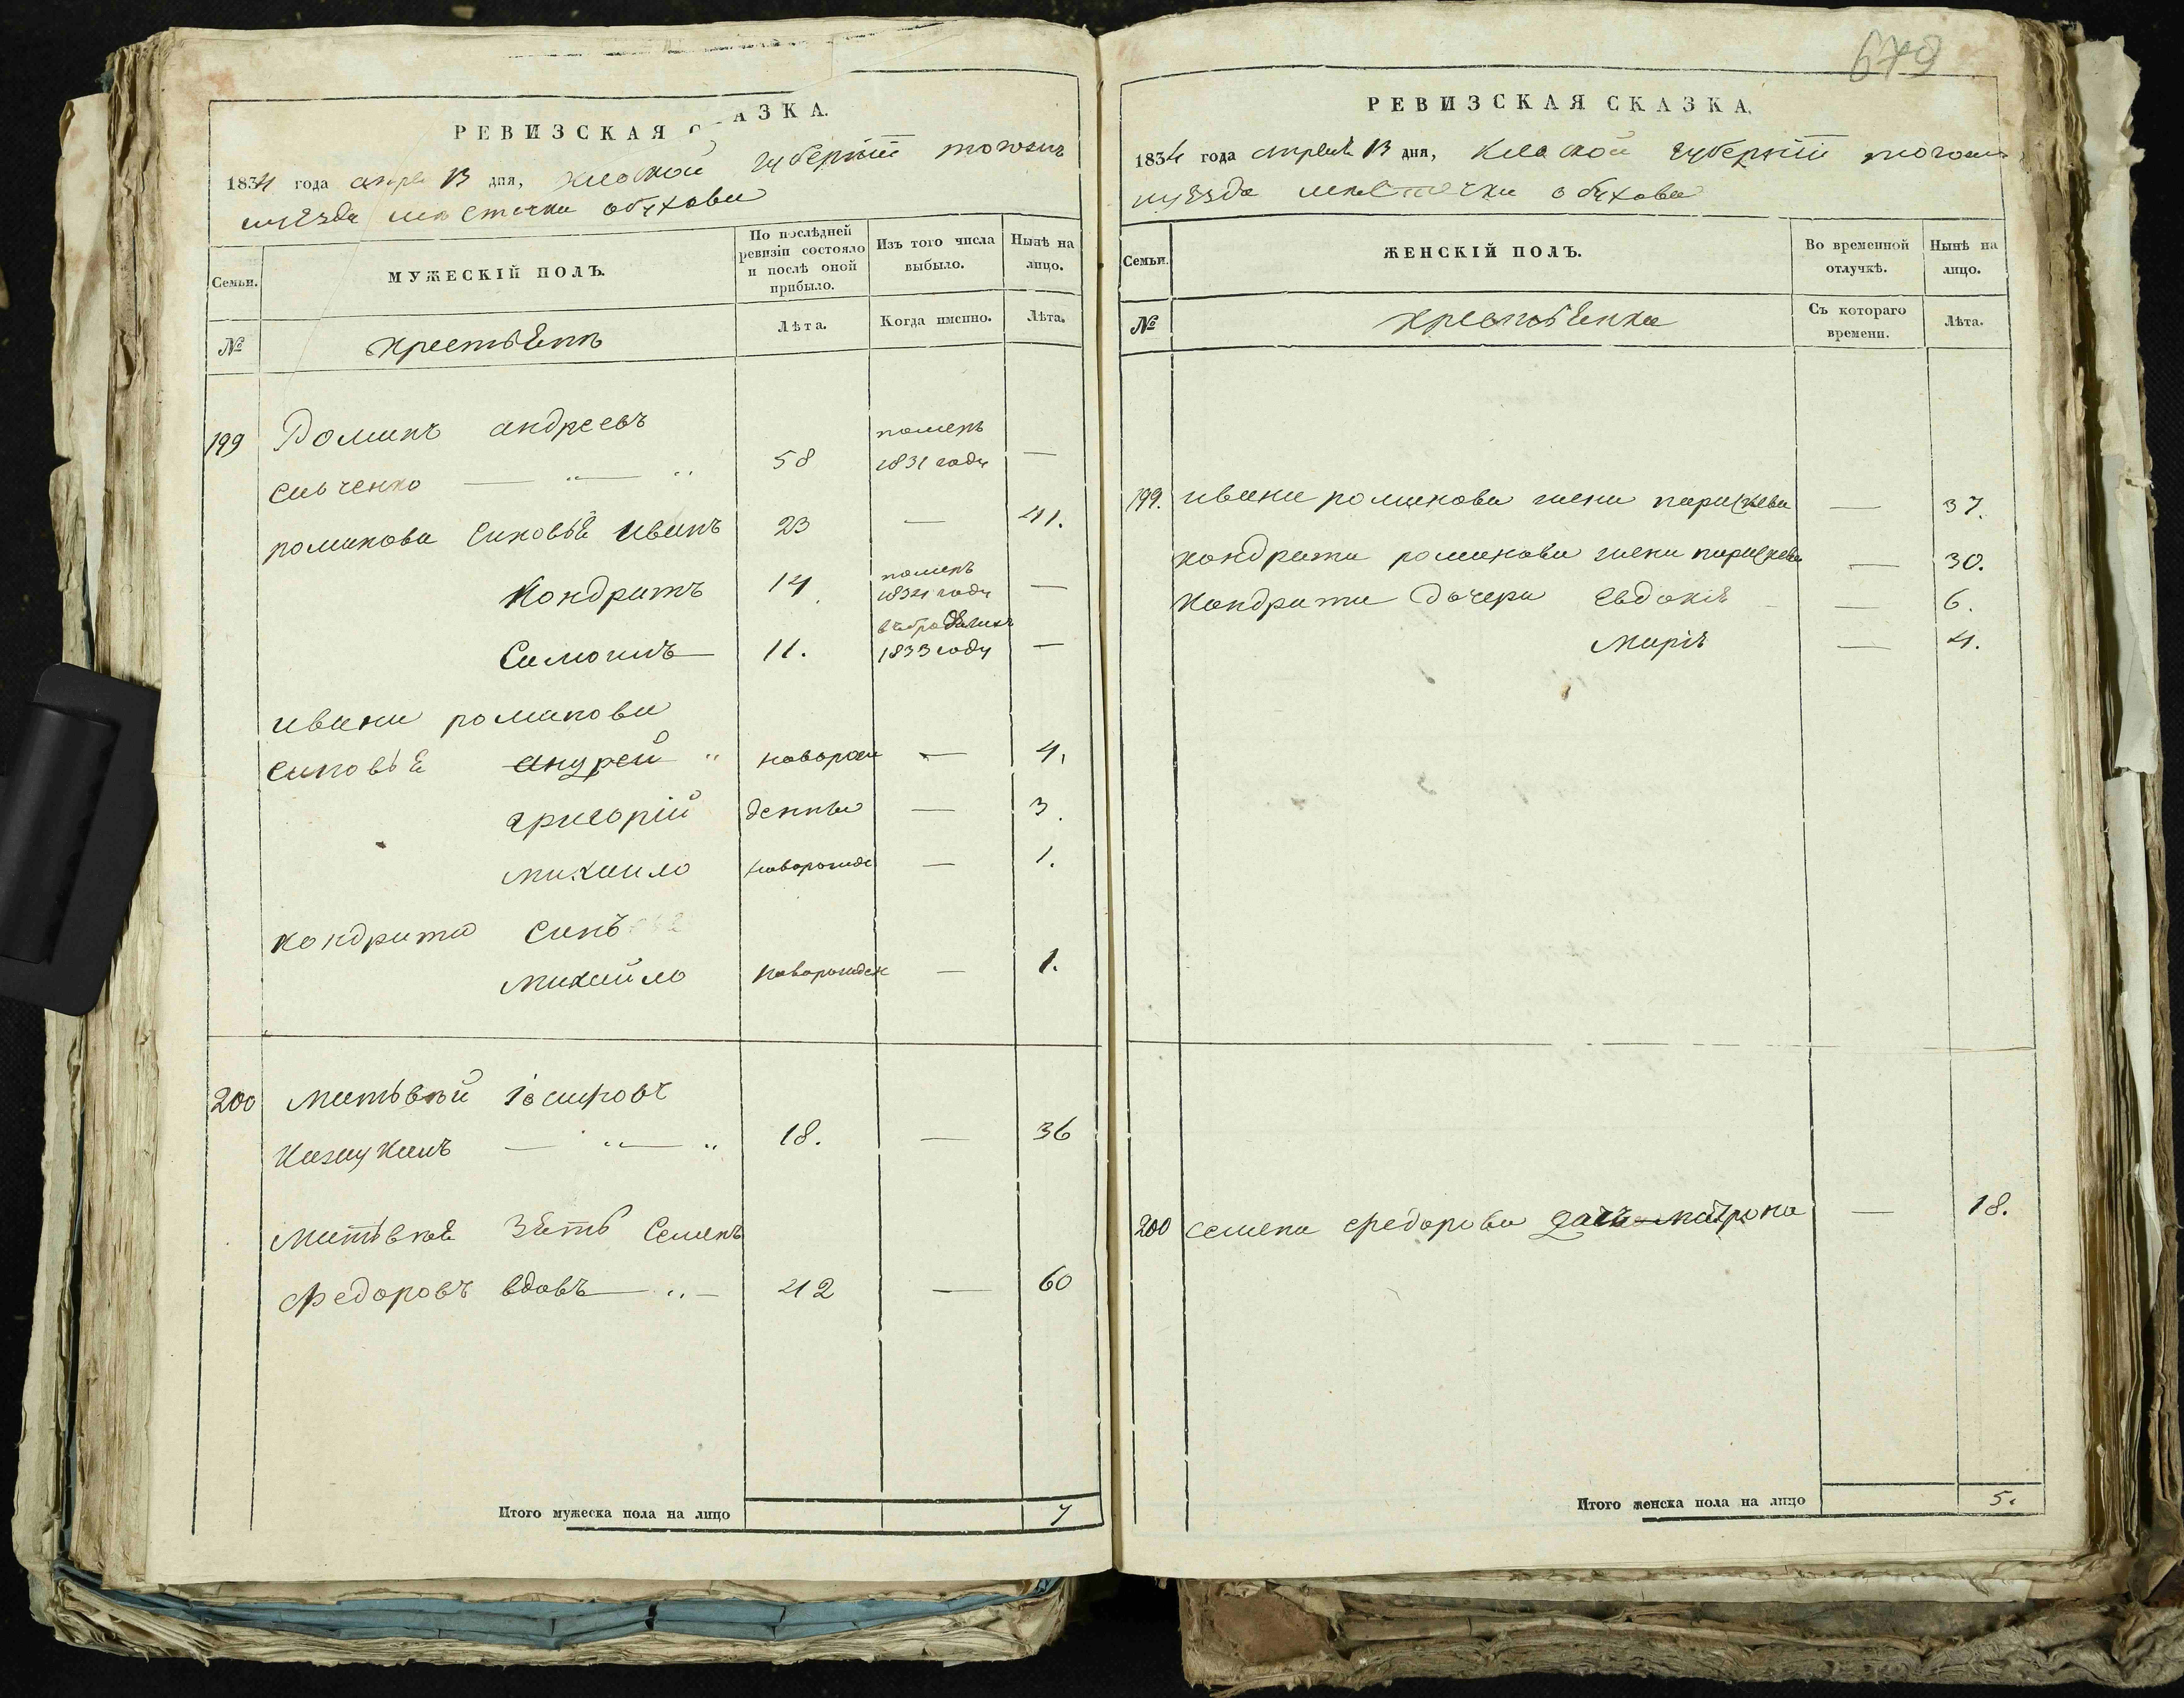 679
РЕВИЗСКАЯ С АЗКА.
1834 года апре 13 дня, Киевской губернїи тогожъ
уѣзда местечка обухова
Семьи.
МУЖЕСКІЙ ПОЛЪ.
По послѣдней ревизіи состояло и послѣ оной прибыло.
Изъ того числа выбыло.
Нынѣ на лицо.
№
Лѣта.
Когда именно.
Лѣта.
199 Романъ андреевъ
58 померъ 1831 году —
романова синовьѣ Иванъ 23 — 41.
Кондратъ 14 померъ году —
11. 1833 году —
ивана романова
синовьѣ андрей новорож — 4.
григорій денны — 3.
михаило новорожде — 1.
кондрата синъ
михайло новорожден — 1.
200
18. — 36
зѣть Семенъ
Федоровъ вдовъ 42 — 60
Итого мужеска пола на лицо 7
РЕВИЗСКАЯ СКАЗКА.
1834 года апреля 13 дня, Киевской губернїи тогожъ
уѣзда местечка обухова
Семьи.
ЖЕНСКІЙ ПОЛЪ.
Во временной отлучкѣ.
Нынѣ на лицо.
№
Съ котораго времени.
Лѣта.
199. ивана романова жена параскева — 37.
кондрата романова жена параскева — 30.
Кондрата дочери Евдокіѣ — 6.
Маріѣ — 4.
200 семена федорова дочь матрона — 18.
Итого женска пола на лицо 5.